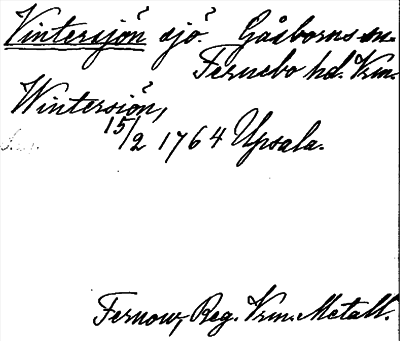 Vintersjön sjö. Gåsborns sn.
Fernebo hd. Vrm.
Wintersiön,
15/2 1764 Upsala.
Fernow, Reg. Vrm. Metall.